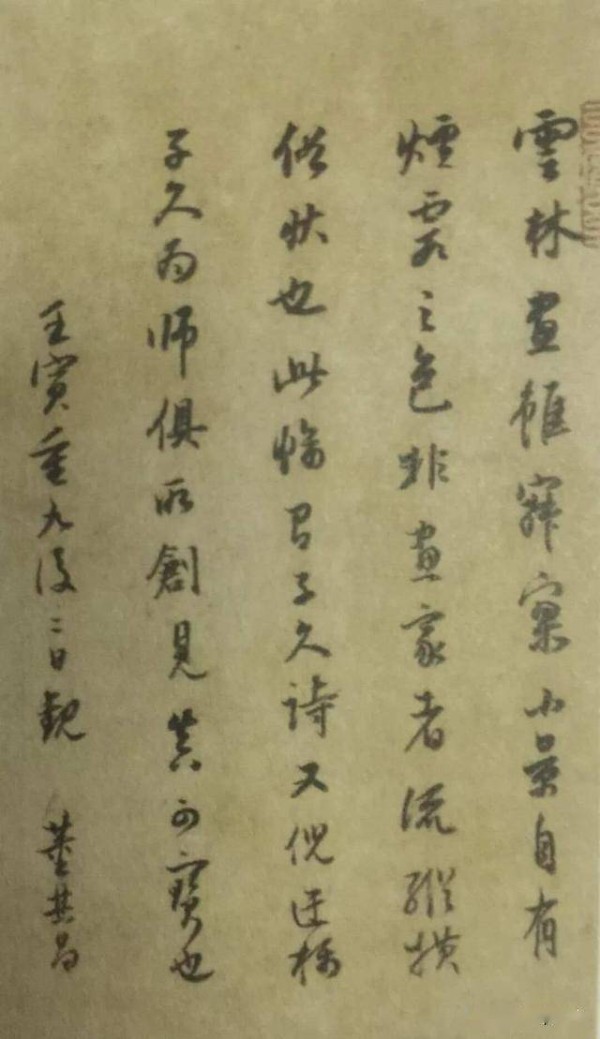 雲林畫雖寂寞小景自有
煙霞之色非畫家者流縱橫
俗状也此幅有子久詩又倪迂稱
子久為师俱所創見其可寶也
壬寅重九後二日觀 董其昌